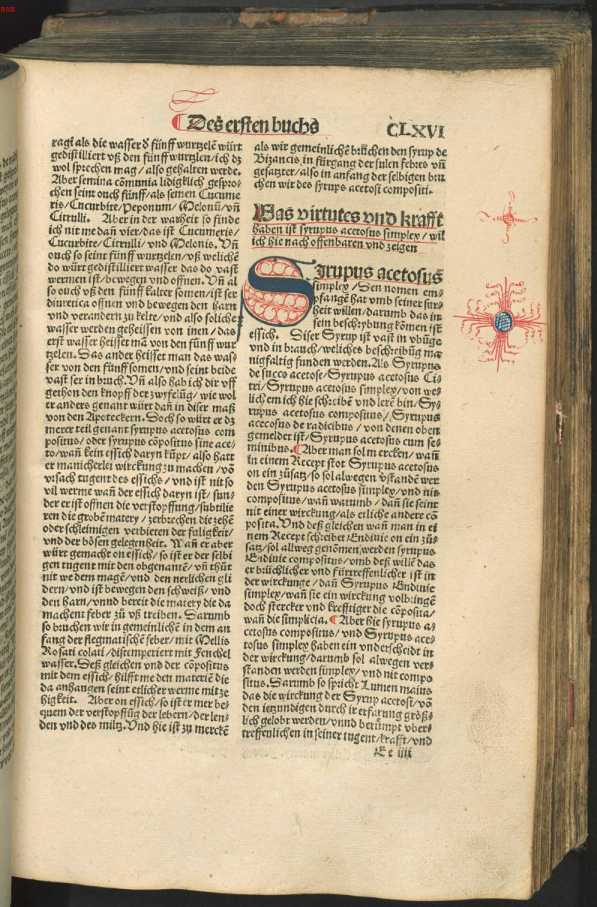 Des ersten buchs
CLXVI
ragi als die wasser d̕ fünff wurtzelē würt
gedistilliert vß den fünff wurtzlen/ich dz
wol sprechen mag/also gehalten werde.
Aber semina cōmunia lidigklich gespro-
chen seint ouch fünff/als seinen Cucume
ris/Cucurbite/Peponum/Melonū/vn̄
Citrulli. Aber in der warheit so finde
ich nit me dan vier/das ist Cucumeris/
Cucurbite/Citrulli/vnd Melonis. Vn̄
ouch so seint fünff wurtzelen/vß welichē
do würt gedistilliert wasser das do vast
wermen ist/bewegen vnd offnen. Vn̄ al
so ouch vß den fünff kalter somen/ist ser
diuretica offnen vnd bewegen den harn
vnd verandern zu kelte/vnd also soliche
wasser werden geheissen von inen/das
erst wasser heisset mā von den fünff wur
tzelen. Das ander heisset man das was-
ser von den fünff somen/vnd seint beide
vast ser in bruch. Vn̄ also hab ich dir vff
gethon den knopff der zwyfelūg/wie wol
er anders genant würt dan̄ in diser maß
von den Apoteckern. Doch so würt er dz
merer teil genant syrupus acetosus com
positus/oder syrupus cōpositus sine ace-
to/wan̄ kein essich daryn kūpt/also hatt
er manicherlei wirckūng zu machen/vō
vrsach tugent des essichs/vnd ist nit so
vil werme wan̄ der essich daryn ist/sun-
der er ist offnen die verstopffung/subtilie
ren die grobe matery/zerbrechen die zehē
oder schleimigen verbieten der fuligkeit/
vnd der bösen gelegenheit. Wan̄ er aber
würt gemacht on essich/so ist er der selbi
gen tugent mit den obgenantē/vn̄ thůt
nit we dem magē/vnd den nerlichen gli
dern/vnd ist bewegen den schweiß/vnd
den harn/vnnd bereit die matery die da
machent feber zů vß treiben. Darumb
so bruchen wir in gemeinlichē in dem an
fang der flegmatischē feber/mit Mellis
Rosati colati/distemperiert mit fenchel
wasser. Deß gleichen vnd der cōpositus
mit dem essich/hilfft me den materiē die
da anhangen seint etlicher werme mit ze
higkeit. Aber on essich/so ist er mer be-
quem der verstopffūg der lebern/der len-
den vnd des miltz. Vnd hie ist zů merckē
als wir gemeinlichē brůchen den syrup de
Bizancis/in fürgang der fulen febres vn̄
gesatzter/also in anfang der selbigen bru
chen wir des syrups acetosi compositi.
Was virtutes vnd krafft
haben ist syrupus acetosus simplex/wil
ich hie nach offenbaren vnd zeigen
Sirupus acetosus
simplex/Den nomen em-
pfangē hat vmb seiner sur-
heit willen/darumb das in
sein beschrybung kōmen ist
essich. Diser Syrup ist vast in vbūge
vnd in bruch/weliches beschribūg ma
nigfaltig funden werden. Als Syrupus
de succo acetose/Syrupus acetosus Ci
tri/Syrupus acetosus simplex/von we-
lichem ich hie schribē vnd lere bin/Sy-
rupus acetosus compositus/Syrupus
acecosus de radicibus/von denen oben
gemeldet ist/Syrupus acetosus cum se-
minibus. Aber man sol mercken/wan̄
in einem Recept stot Syrupus acetosus
on ein zůsatz/so sol alwegen v̕standē wer
den Syrupus acetosus simplex/vnd nit
compositus/wan̄ warumb/dan̄ sie seint
nit einer wirckung/als erliche ander cō
posita. Vnd deß gleichen wan̄ man in ei
nem Recept schreibet Endiuie on ein zů-
satz/sol allweg genōmen werden syrupus
Endiuie compositus/vmb deß willē das
er brüchlicher vnd fürtreffenlicher ist in
der wirckunge/dan̄ Syrupus Endiuie
simplex/wan̄ sie ein wirckung volbringē
doch stercker vnd krefftiger die cōposita/
wan̄ die simplicia. Aber die syrupus a-
cetosus compositus/vnd Syrupus ace-
tosus simplex haben ein vnderscheidt in
der wirckung/darumb sol alwegen ver-
standen werden simplex/vnd nit compo
situs. Darumb so spricht Lumen maius
das die wirckung der Syrup acetosi/vō
den ietzundigen durch ir erfarung größ-
lich gelobt werden/vnnd berümpt vber-
treffenlichen in seiner tugent/krafft/vnd
Ee iiii